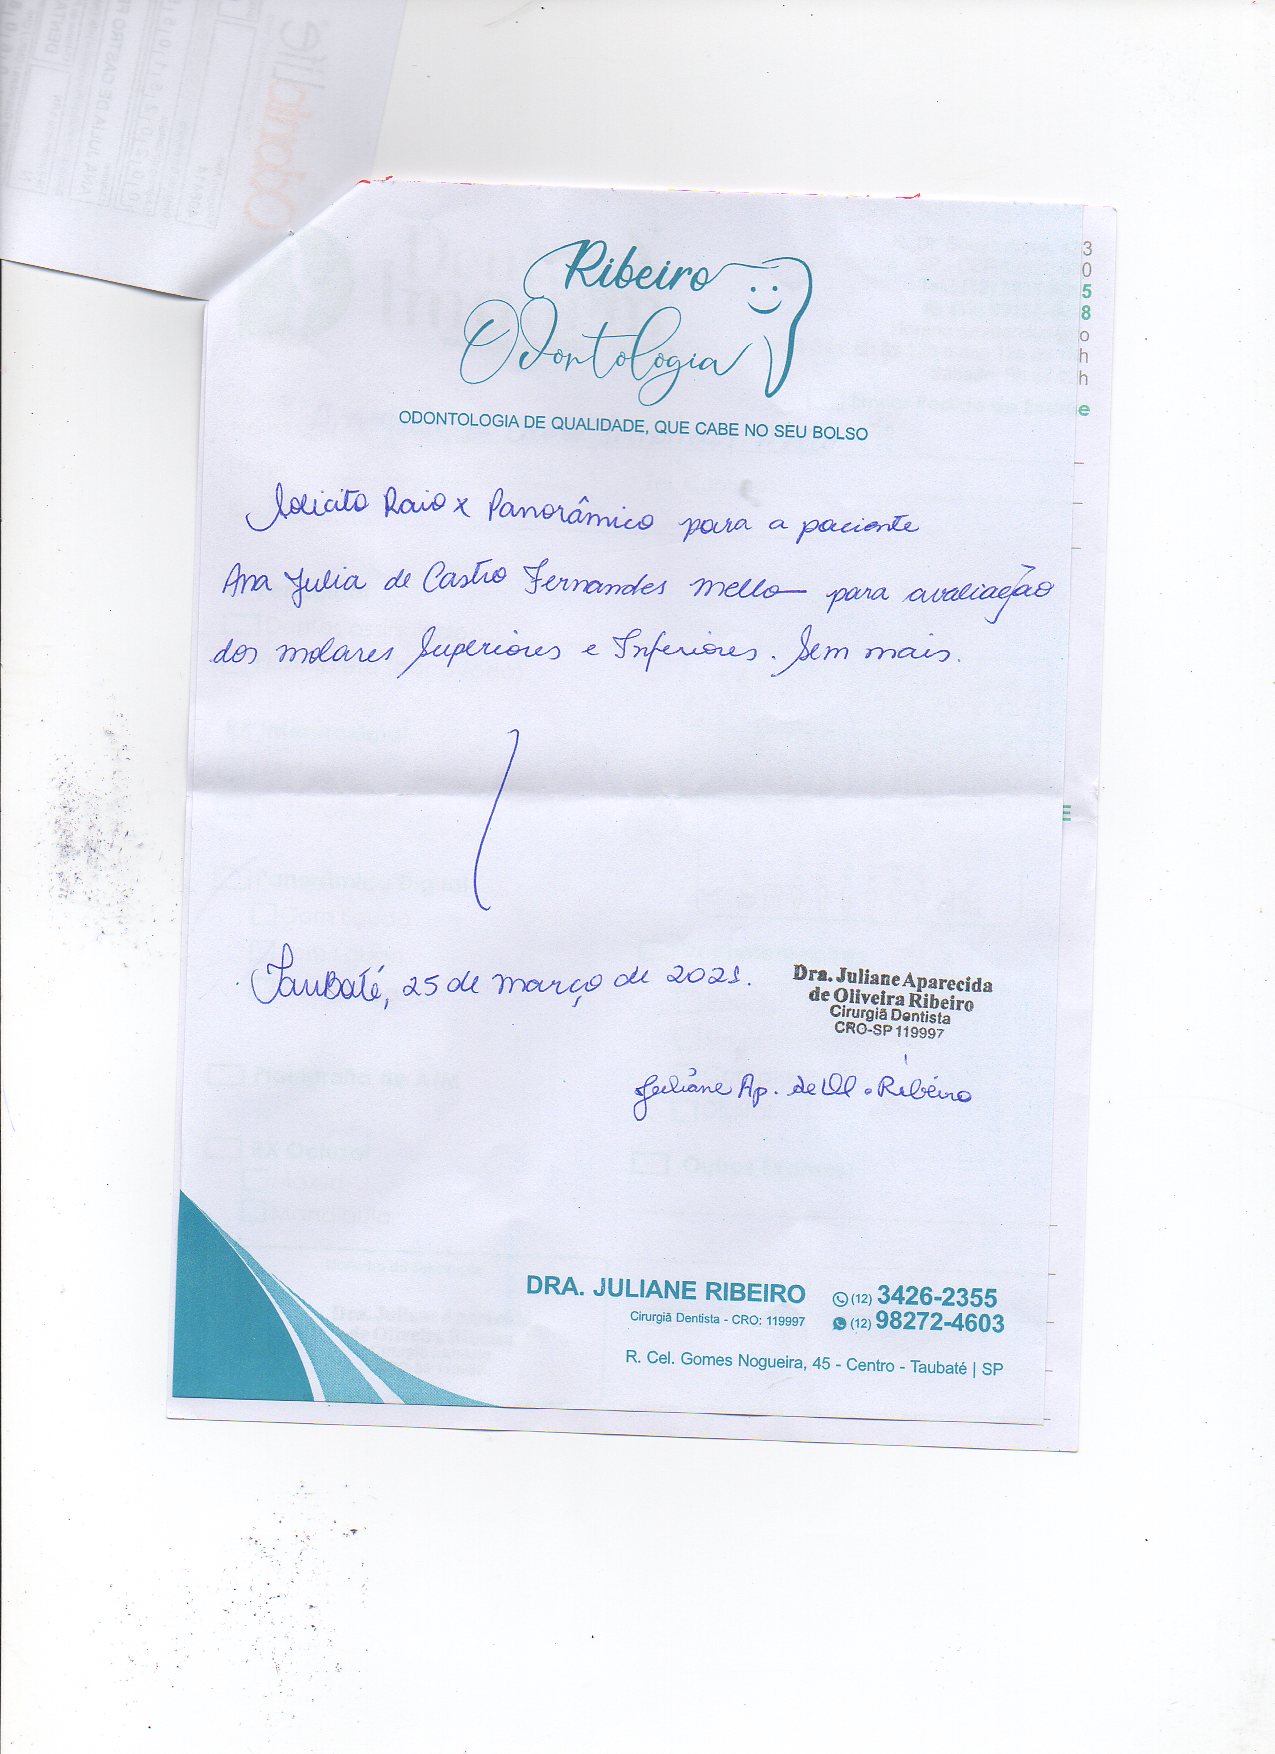 Ribeiro
Odontologia
ODONTOLOGIA DE QUALIDADE, QUE CABE NO SEU BOLSO
Solicito Raio x Panorâmico para a paciente
Ana Julia de Castro Fernandes Mello para avaliação
dos molares Superiores e Inferiores. Sem mais.
Taubaté, 25 de março de 2021.
Dra. Juliane Aparecida
de Oliveira Ribeiro
Cirurgiã Dentista
CRO-SP 119997
Juliane Ap. de Ol. Ribeiro
DRA. JULIANE RIBEIRO
Cirurgiã Dentista - CRO: 119997
(12) 3426-2355
(12) 98272-4603
R. Cel. Gomes Nogueira, 45 - Centro - Taubaté | SP
3
0
5
8
o
h
h
e
E